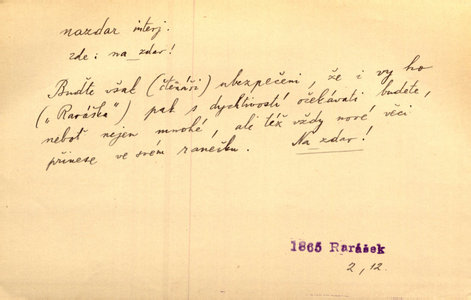 nazdar interj.
zde: na_zdar!
Buďte však (čtenáři) ubezpečeni, že i vy ho
("Raráška") pak s dychtivostí očekávati budete,
neboť nejen mnohé, ale též vždy nové věci
přinese ve svém ranečku. Na_zdar!
1865 Rarášek
2, 12.